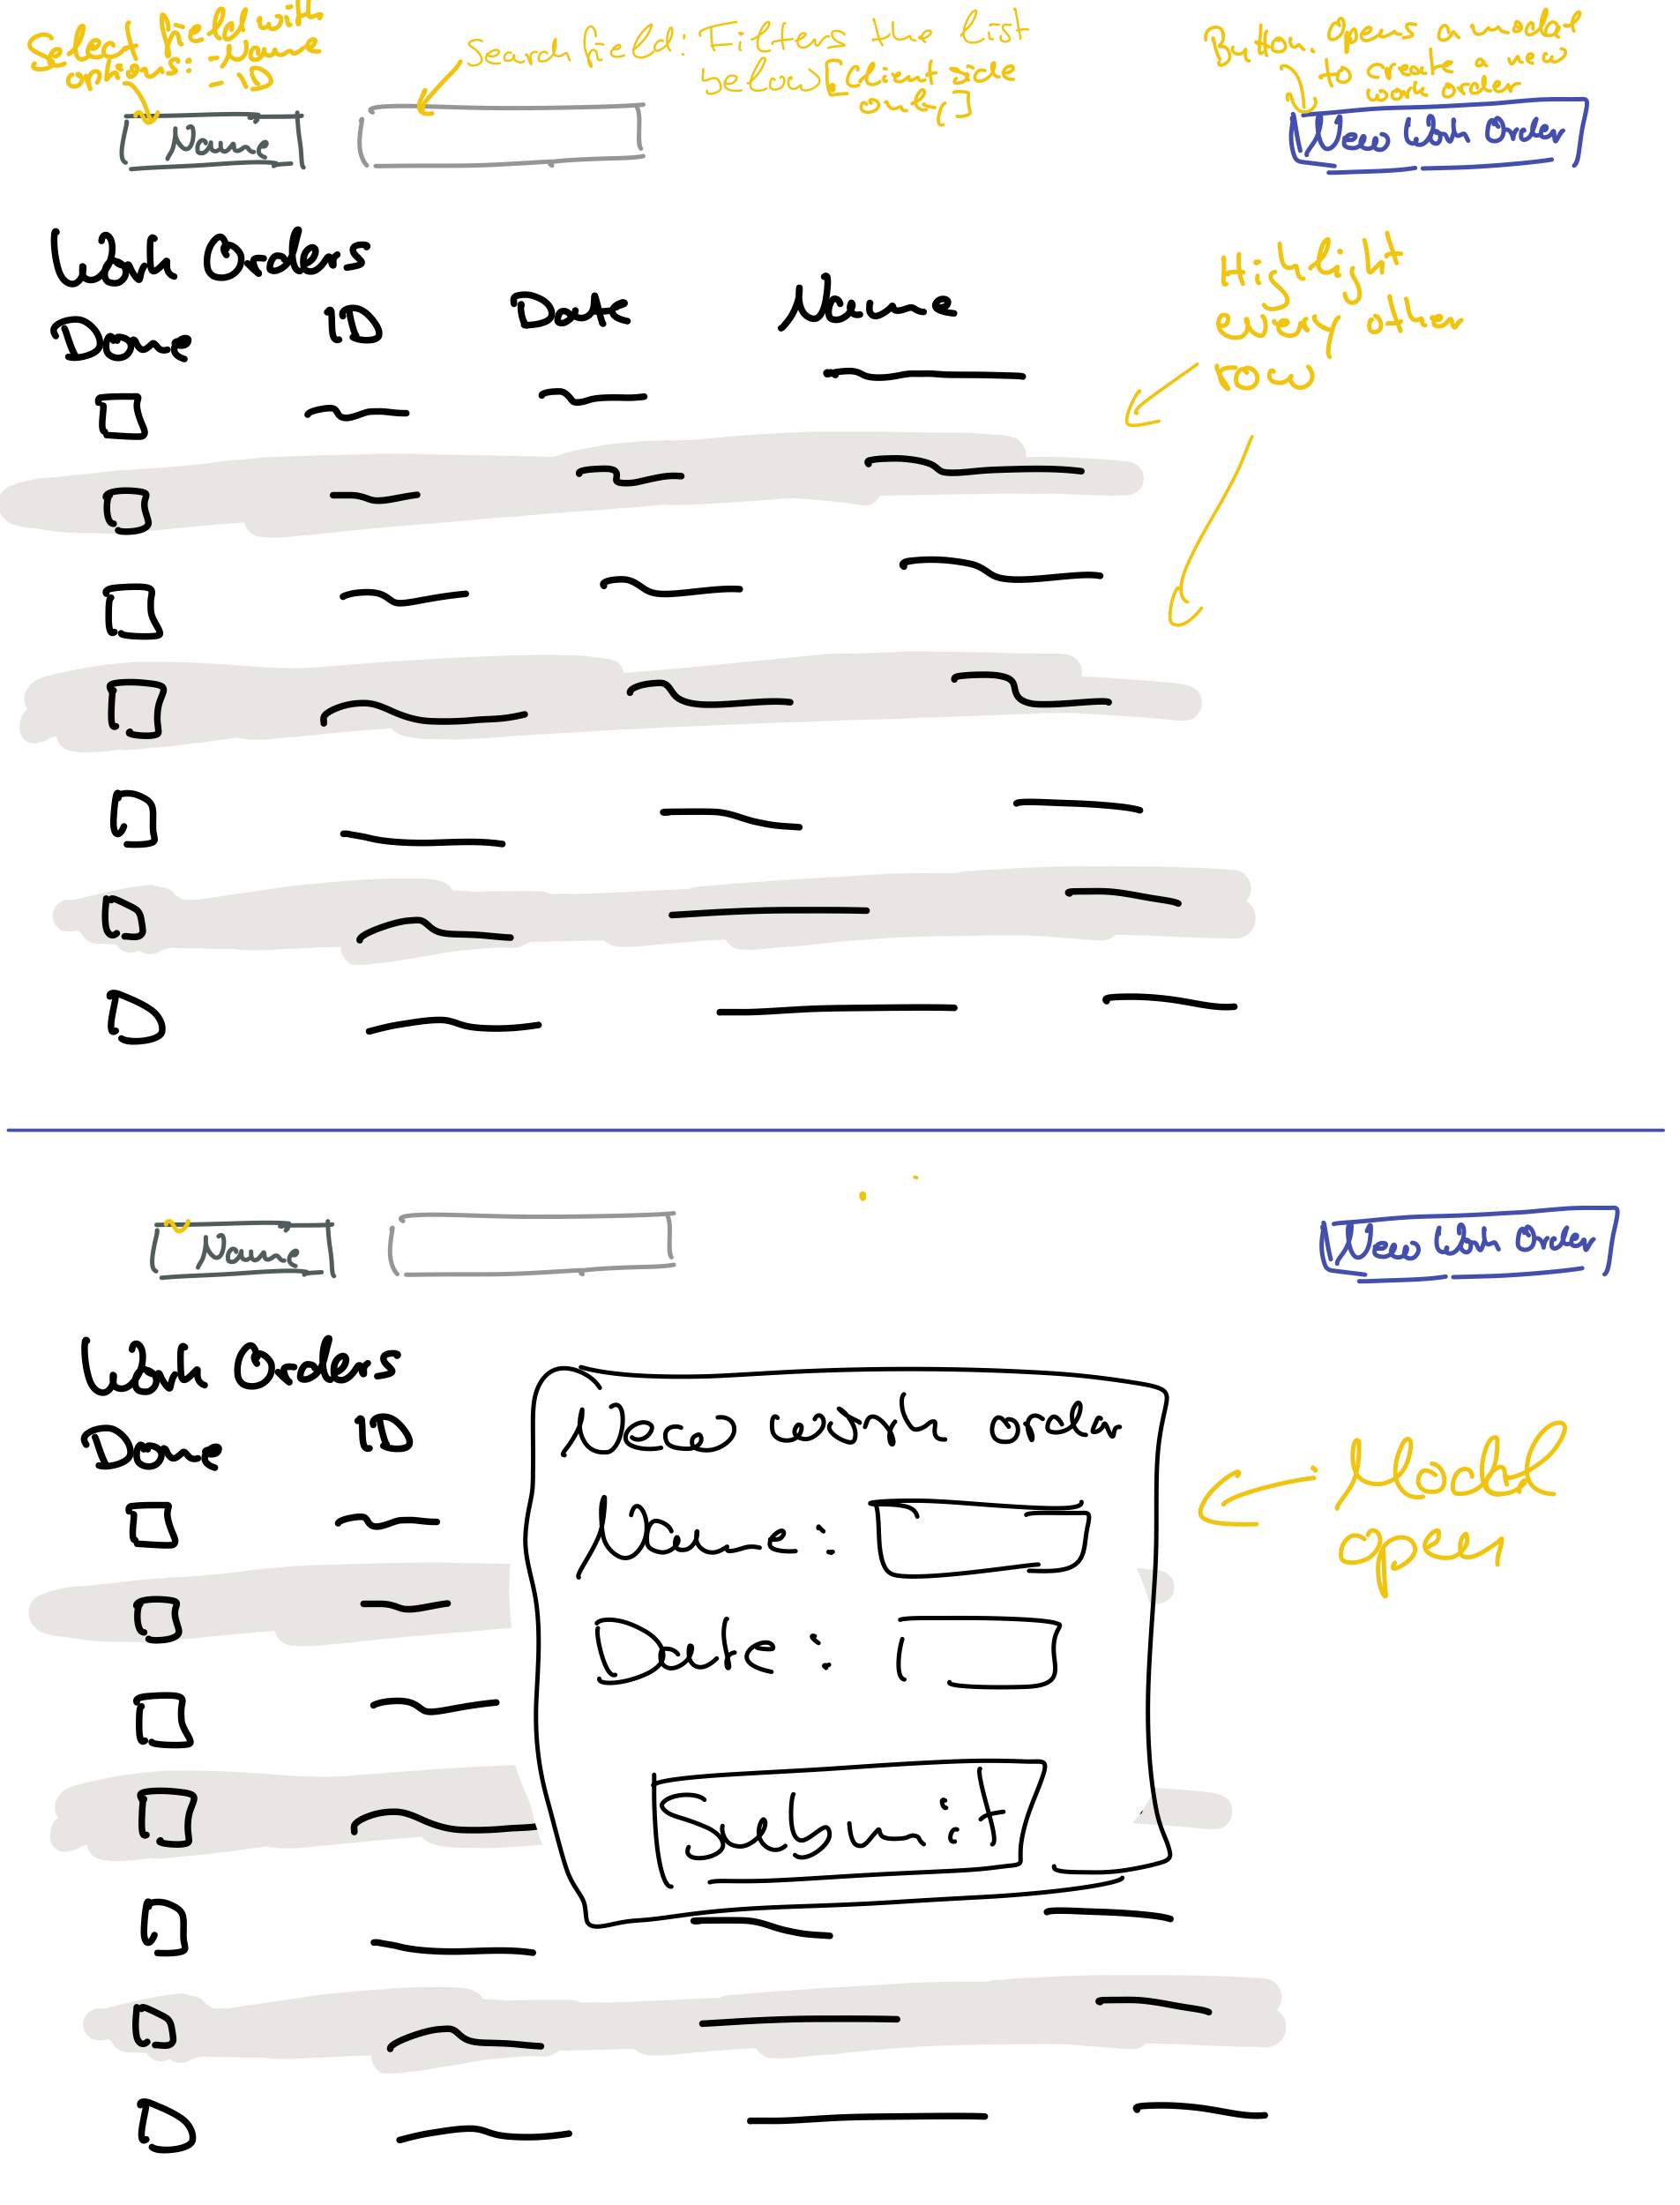 Select field with
options: - Name
- ID
Search field: Filters the list
below [client side
only]
Button. Opens a modal
to create a new
work order
Name
New Work Order
Work Orders
Done ID Date Name
Highlight
every other
row
Name
New Work Order
Work Orders
Done ID
New work order
Name:
Date:
Submit
Modal
open